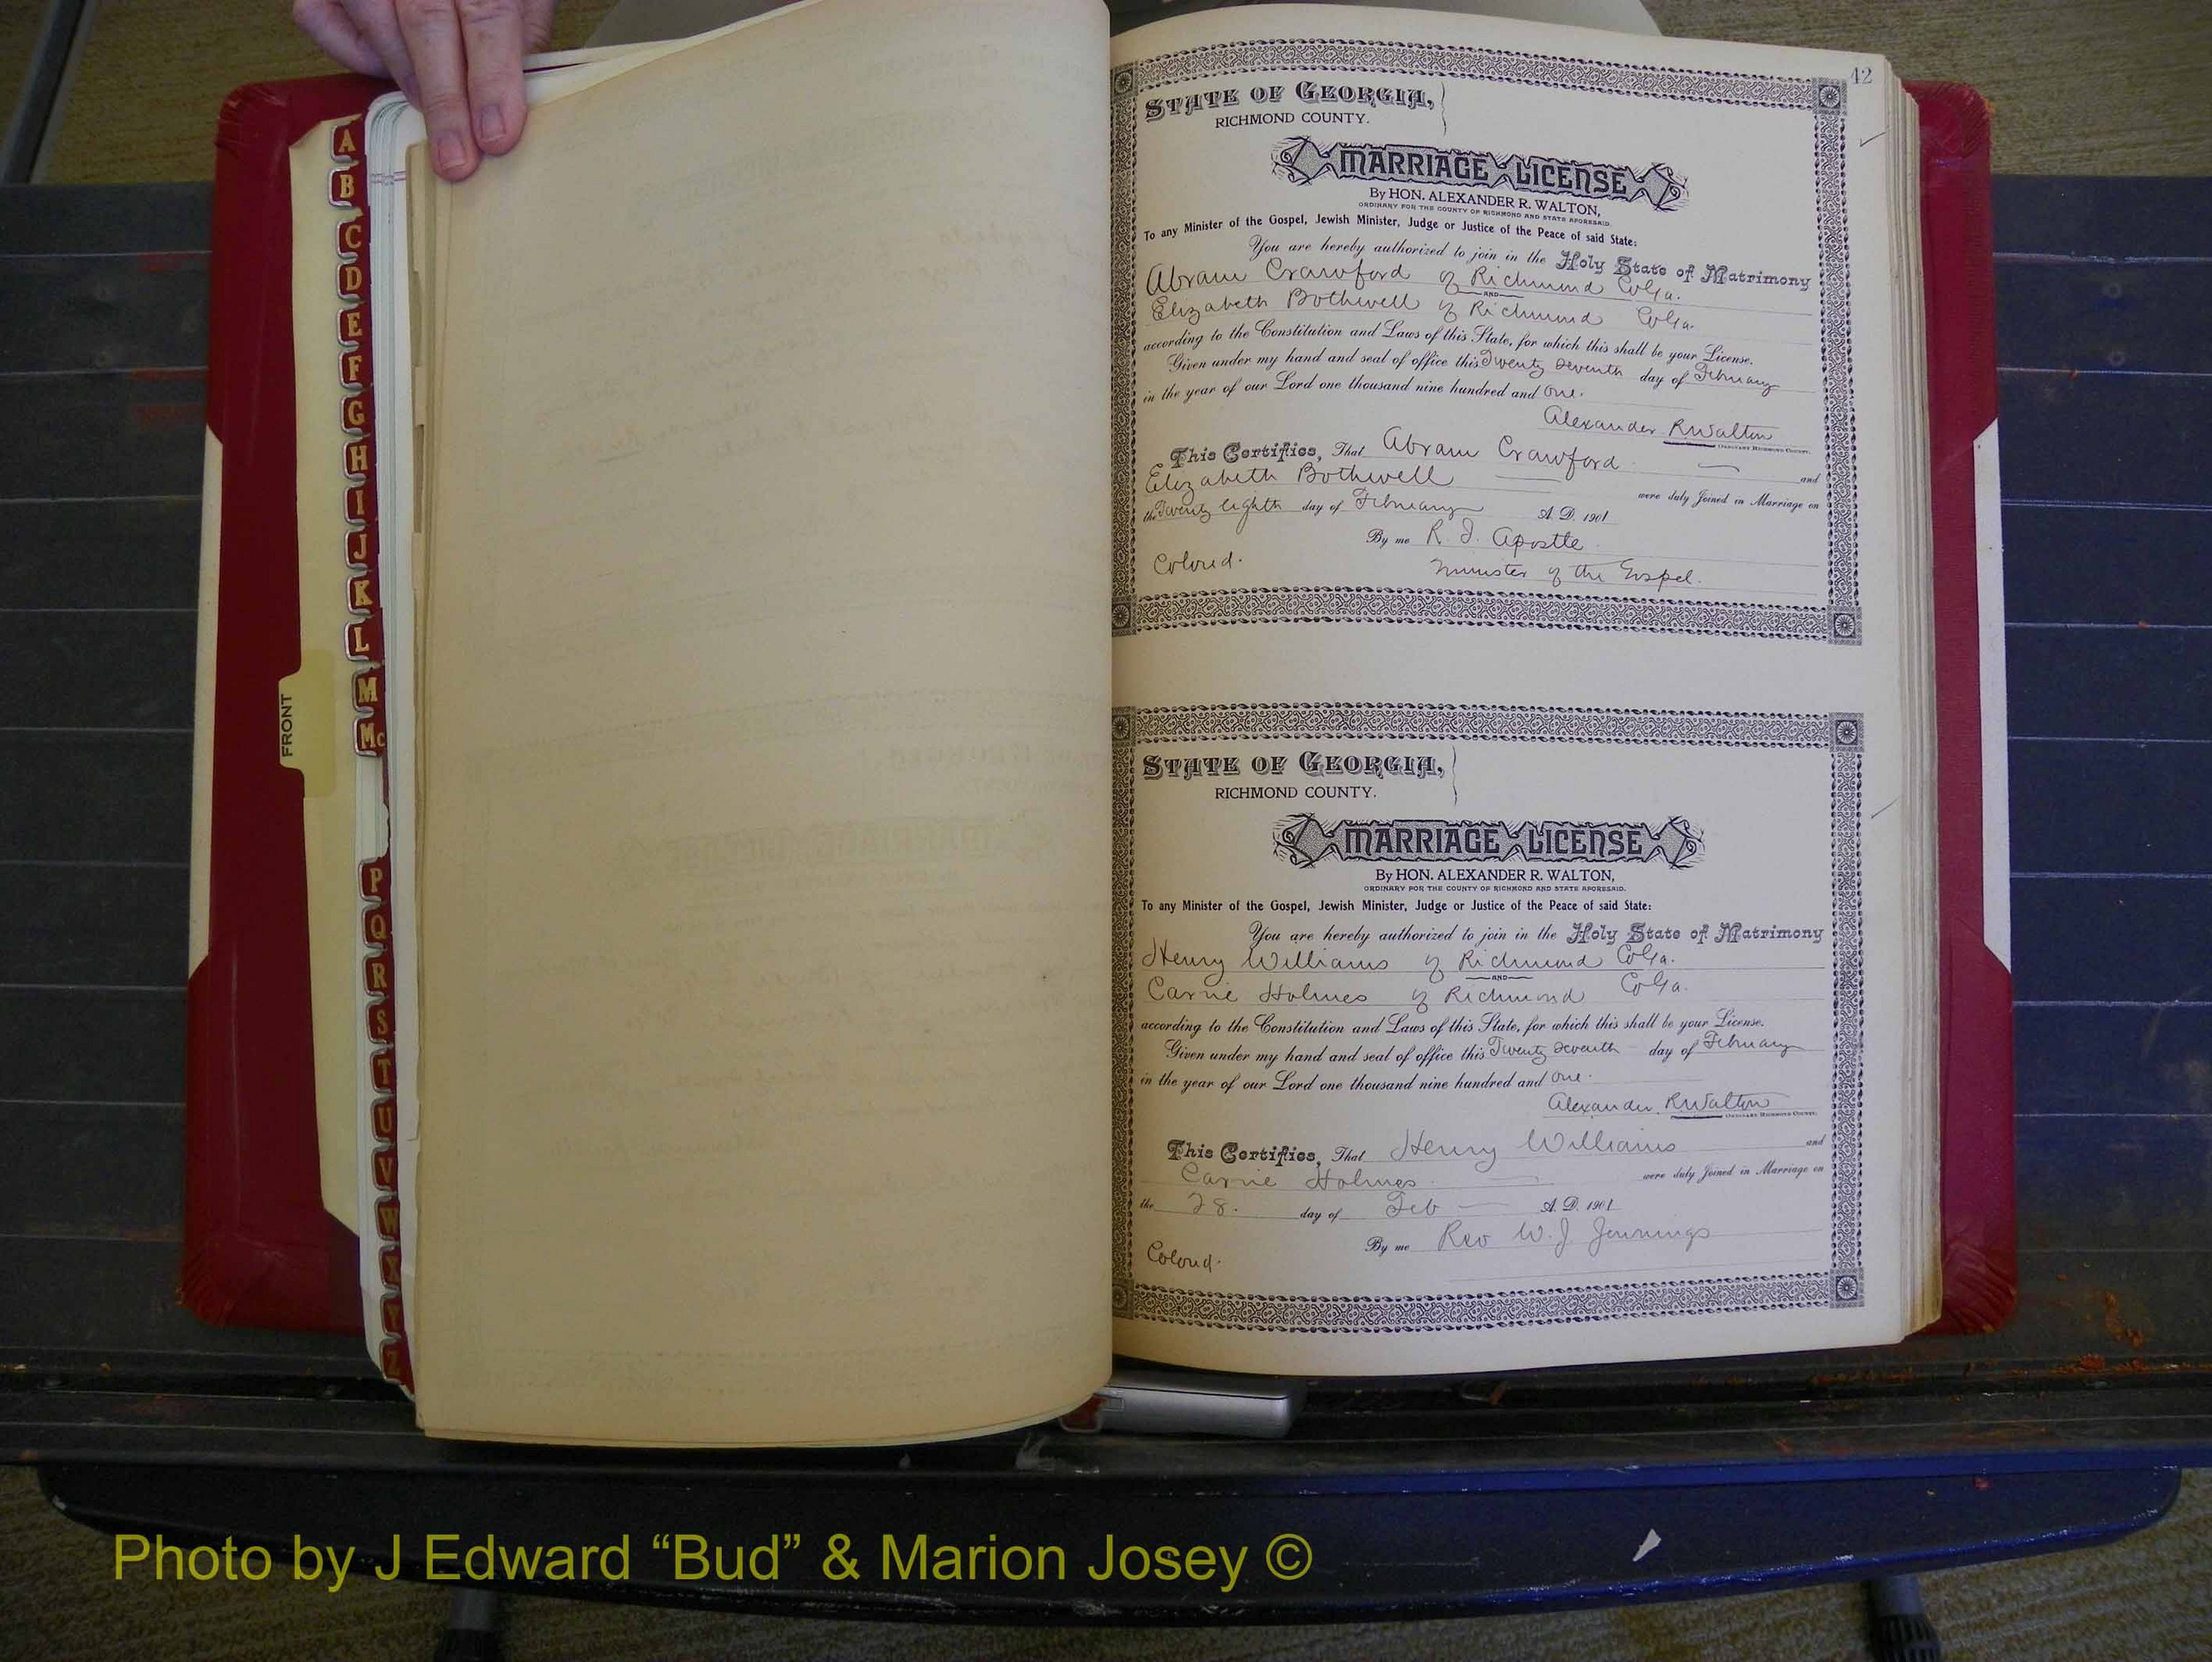 A
B
C
D
E
F
G
H
I
J
K
L
M
Mc
P
Q
R
S
T
U
V
W
X
Y
Z
FRONT
42
STATE OF GEORGIA,
RICHMOND COUNTY.
MARRIAGE LICENSE
By HON. ALEXANDER R. WALTON,
ORDINARY FOR THE COUNTY OF RICHMOND AND STATE AFORESAID.
To any Minister of the Gospel, Jewish Minister, Judge or Justice of the Peace of said State:
You are hereby authorized to join in the Holy State of Matrimony
Abram Crawford of Richmond Co Ga.
AND
Elizabeth Bothwell of Richmond Co Ga.
according to the Constitution and Laws of this State, for which this shall be your License.
Given under my hand and seal of office this Twenty Seventh day of February
in the year of our Lord one thousand nine hundred and One.
Alexander R Walton
ORDINARY RICHMOND COUNTY.
This Certifies, That Abram Crawford and
Elizabeth Bothwell were duly Joined in Marriage on
the Twenty eighth day of February A. D. 1901
By me R. J. Apostle
Colored. Minister of the Gospel.
STATE OF GEORGIA,
RICHMOND COUNTY.
MARRIAGE LICENSE
By HON. ALEXANDER R. WALTON,
ORDINARY FOR THE COUNTY OF RICHMOND AND STATE AFORESAID.
To any Minister of the Gospel, Jewish Minister, Judge or Justice of the Peace of said State:
You are hereby authorized to join in the Holy State of Matrimony
Henry Williams of Richmond Co Ga.
AND
Carrie Holmes of Richmond Co Ga.
according to the Constitution and Laws of this State, for which this shall be your License.
Given under my hand and seal of office this Twenty Seventh day of February
in the year of our Lord one thousand nine hundred and One.
Alexander R Walton
ORDINARY RICHMOND COUNTY.
This Certifies, That Henry Williams and
Carrie Holmes were duly Joined in Marriage on
the 28. day of Feb A. D. 1901
By me Rev W. J. Jennings
Colored.
Photo by J Edward “Bud” & Marion Josey ©